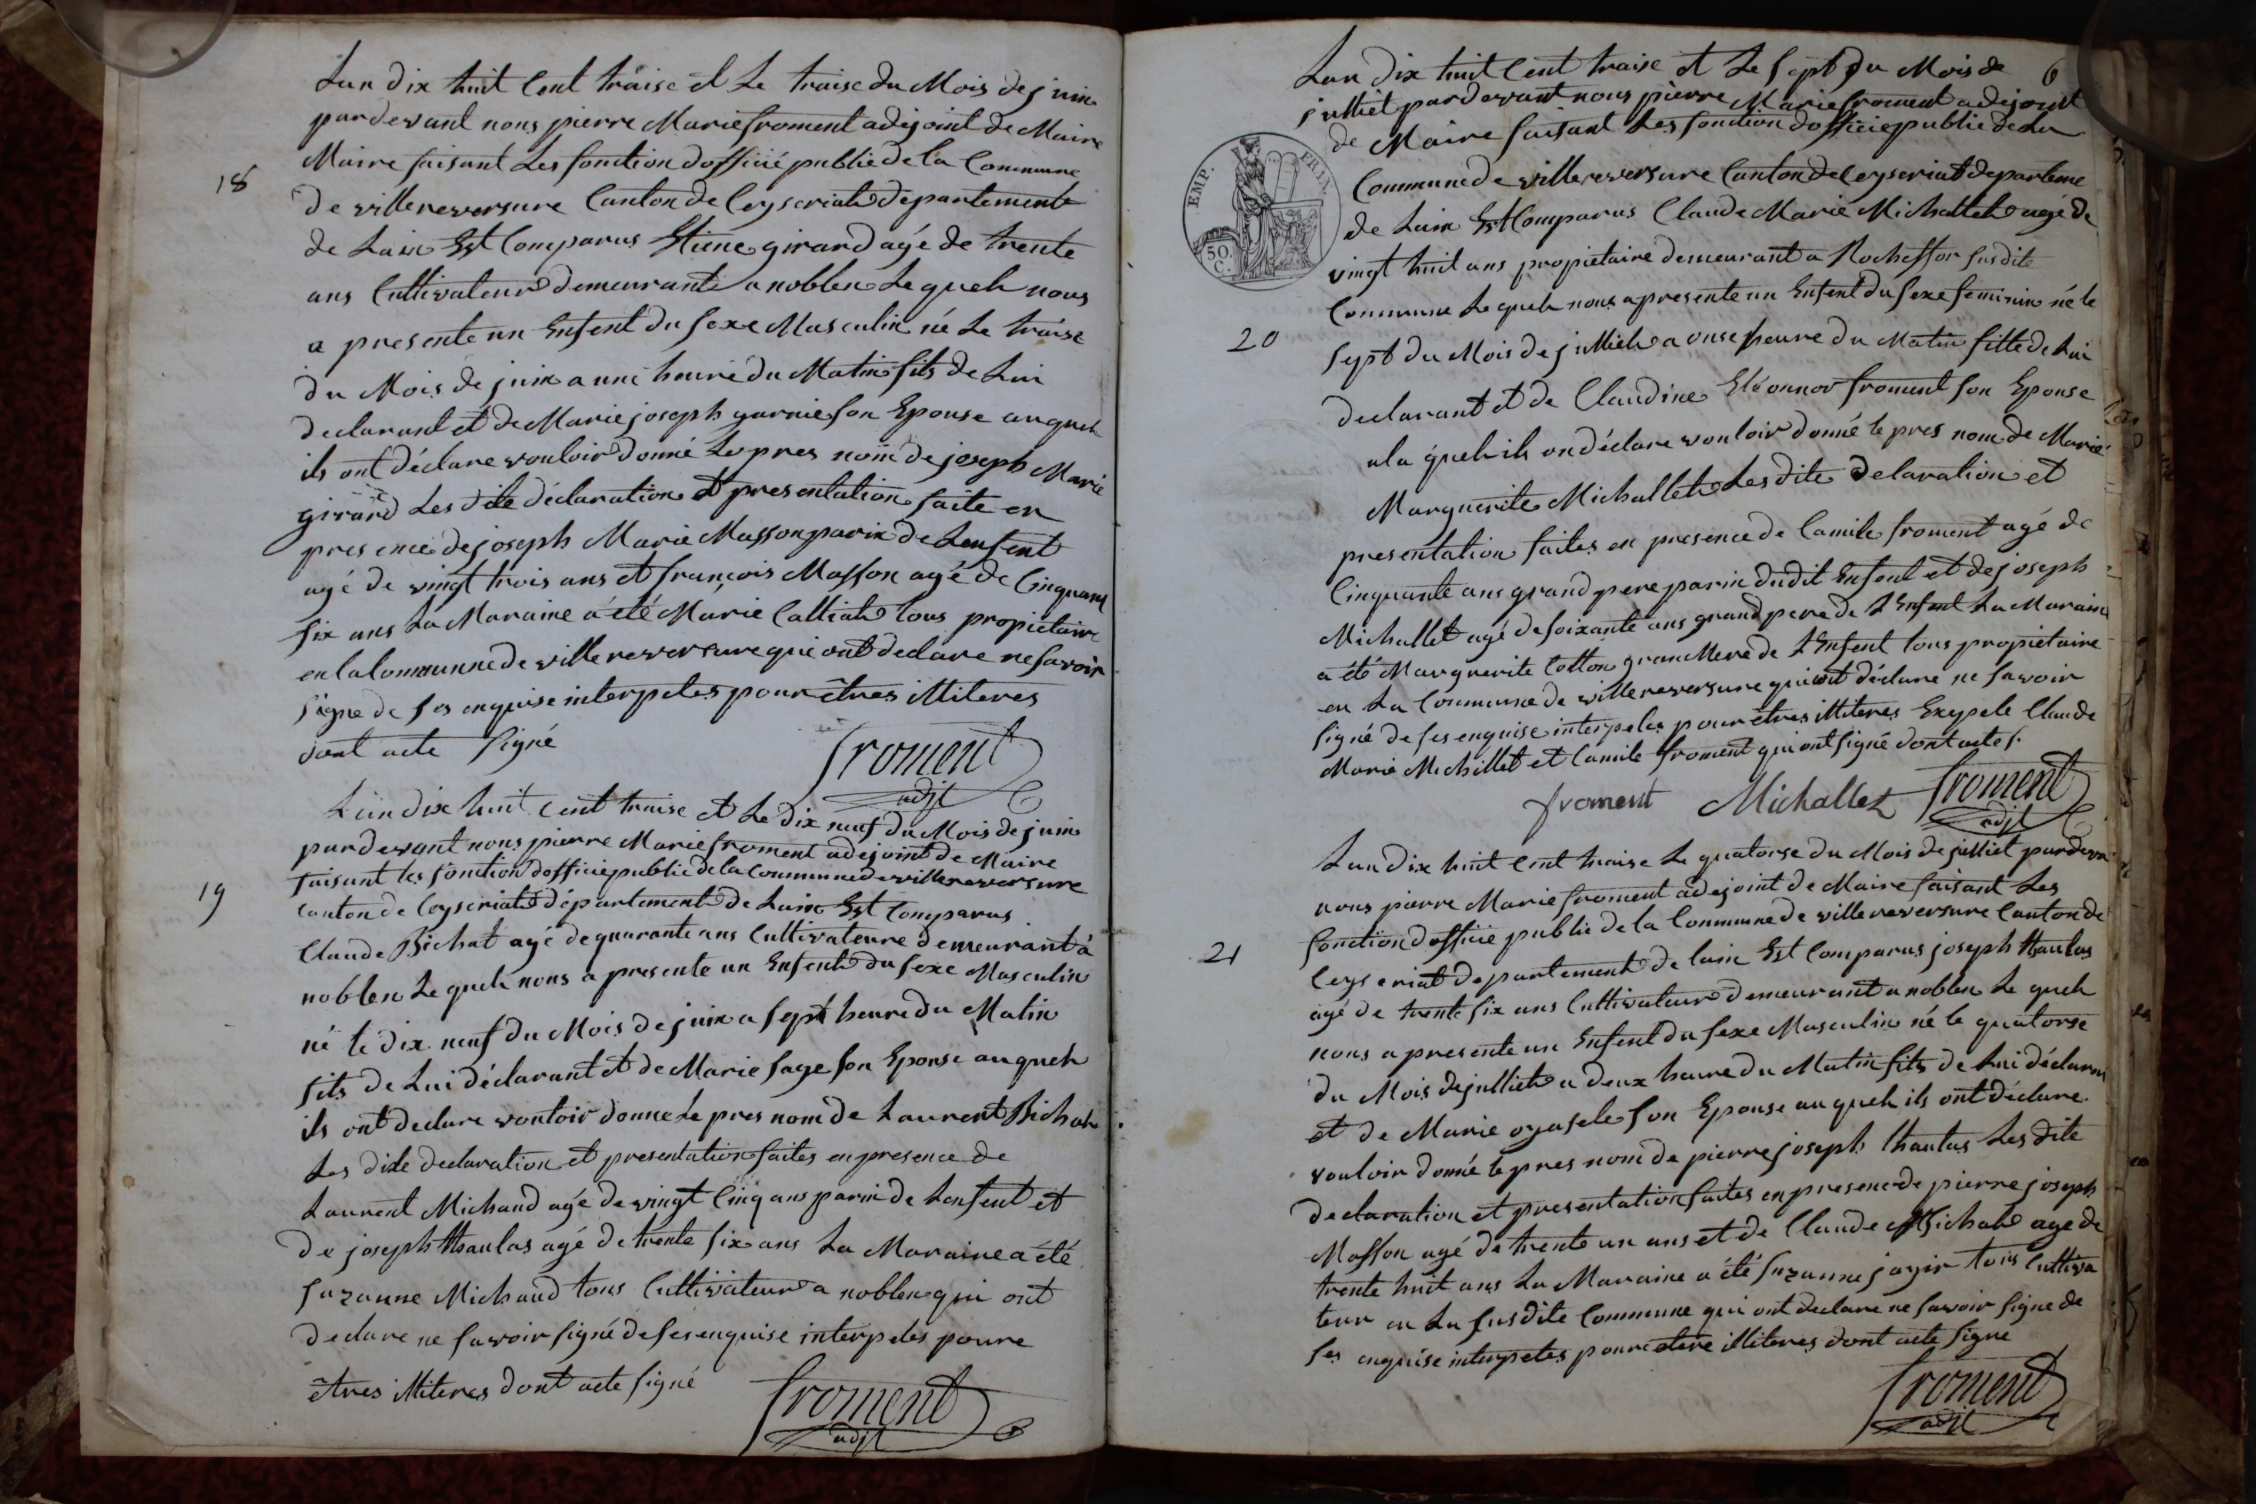 Lan dix huit Cent traise et Le traise du Mois de juin
pardevant nous pierre Marie froment adejoint de Maire
Maire faisant Les fonction dofficié public de la Commune
18
de villereversure Canton de Ceyseriat département
de Lain Est Comparus Etiene girard agé de trente
ans Cultivateur demeurant a noblen Le queh nous
a presente un Enfent du sexe Masculin né Le traise
du Mois de juin a une heure du Matin fils de Lui
declarant et de Marie joseph garnie son Epouse auqueh
ils ont déclare vouloir donné Le pres nom de joseph Marie
girard Les dite déclaration et presentation faite en
presence de joseph Marie Masson parin de Lenfent
agé de vingt trois ans et françois Masson agé de Cinquant
six ans La Maraine a été Marie Calliah tous propiétaire
en la Commune de villereversure qui ont declare ne savoir
signe de ses enquise interpeles pour êtres illiteres
dont acte signé
froment
adjt
Lan dix huit cent traise et Le dix neuf du Mois de juin
pardevant nous pierre Marie froment adejoint de Maire
faisant les fonction dofficie public de la Commune de villereversure
19
canton de Ceyseriat département de Lain Est Comparus
Claude Bichat agé de quarante ans Cultivateure demeurant à
noblen Le queh nous a presente un Enfent du sexe Masculin
né le dix neuf du Mois de juin a sept heure du Matin
fils de Lui déclarant et de Marie sage son Epouse auqueh
ils ont declare vouloir donne Le pres nom de Laurent Bichat
Les dite declaration et presentation faites en presence de
Laurent Michaud agé de vingt Cinq ans parin de Lenfent et
de joseph thaulas agé de trente six ans La Maraine a été
suzanne Michaud tous Cultivateur a noblen qui ont
declare ne savoir signé de ses enquise interpelés poure
êtres illiteres dont acte signé
froment
adjt
Lan dix huit Cent traise et Le sept du Mois de
6
julliet pardevant nous pierre Marie froment adejoint
de Maire faisant Les fonction dofficie public de La
EMP. FRAN.
50. C.
Commune de villereversure Canton de Ceyseriat departeme
de Lain Est Comparus Claude Marie Michalleh agé de
vingt huit ans propietaire demeurant a Rocheffor susdite
Commune Le queh nous a presente un Enfent du sexe feminin né le
20
sept du Mois de julliet a onse heure du Matin fille de Lui
declarant et de Claudine Eléonnor froment son Epouse
a la queh ils on déclare vouloir donné le pres nom de Marie
Marguerite Michalleh Les dite Delaration et
presentation faites en presence de Camile froment agé de
Cinquante ans grand pere parin dudit Enfent et de joseph
Michallet agé de soixante ans grand pere de L Enfent La Maraine
a été Marguerite Cotton gran Mere de L Enfent tous propietaire
en La Commune de villereversure qui ont déclare ne savoir
signé de ses enquise interpeles pour êtres illiteres Exepele Claude
Marie Michillet et Camile froment qui ont signé dont acte s.
froment Michallet froment
adjt
Lan dix huit cent traise Le quatorse du Mois de julliet pardevan
nous pierre Marie froment adejoint de Maire faisant Les
fonction dofficie public de la Commune de villereversure Canton de
21
Ceyseriat departement de lain Est Comparus joseph thaulas
agé de trente six ans Cultivateur demeurant a noblen Le queh
nous a presente un Enfent du sexe Masculin né le quatorse
du Mois de julliet a deux heure du Matin fils de Lui déclaran
et de Marie oyasele son Epouse auqueh ils ont déclare
vouloir donné le pres nom de pierre joseph thaulas Les dite
declaration et presentation faites en presence de pierre joseph
Masson agé de trente un ans et de Claude Bichat age de
trente huit ans La Maraine a été suzanne jayir tous Cultiva
teur en La susdite Commune qui ont declare ne savoir signe de
ses enquise interpeles poure etere illiteres dont acte signe
froment
adjt